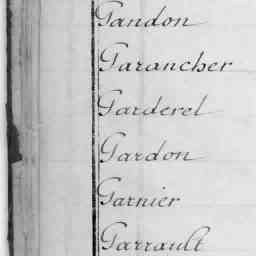 Gandon
Garancher
Garderel
Gardon
Garnier
Garrault